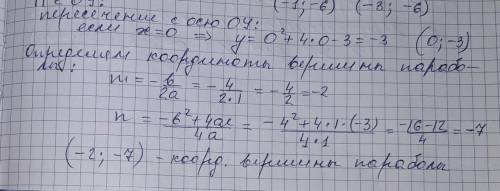 (-1; -6) (-3; -6)
пересечение с осью OY:
если x=0 ⇒ y= 0²+4·0-3=-3 (0;-3)
Определяем координаты вершины парабо-
лы:
m = -b/2a = -4/2·1 = -4/2 = -2
n = -b²+4ac/4a = -4²+4·1·(-3)/4·1 = -16-12/4 = -7
(-2; -7) - коорд. вершины параболы